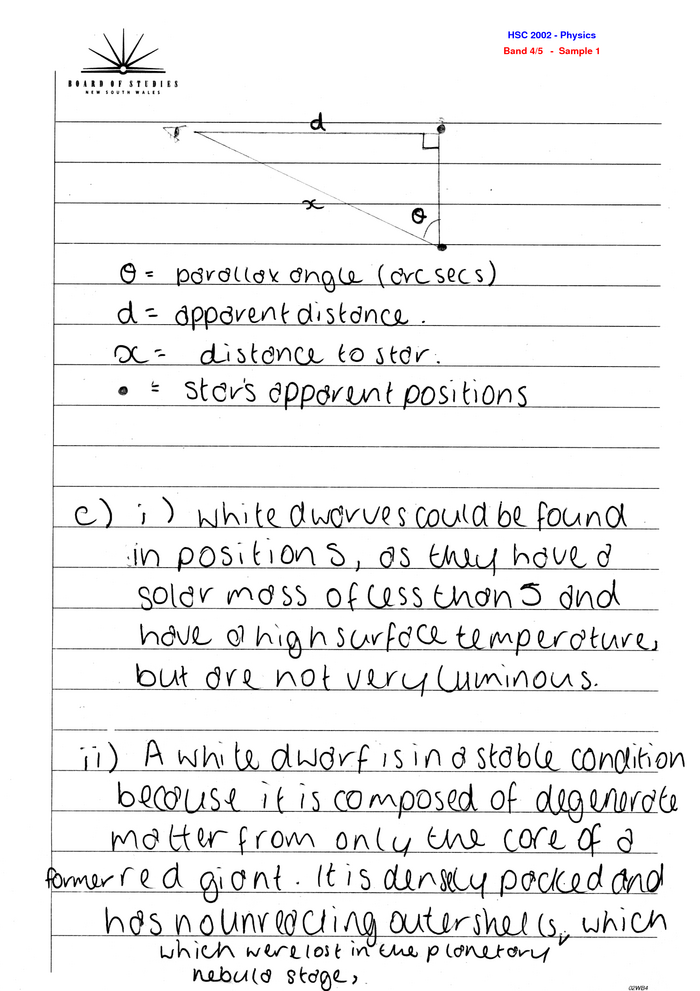 HSC 2002 - Physics
Band 4/5 - Sample 1
BOARD OF STUDIES
NEW SOUTH WALES
d
x
θ
θ = parallax angle (arcsecs)
d = apparent distance.
x = distance to star.
• = star's apparent positions
c) i) white dwarves could be found
in position S, as they have a
solar mass of less than 5 and
have a high surface temperature,
but are not very luminous.
ii) A white dwarf is in a stable condition
because it is composed of degenerate
matter from only the core of a
former red giant. It is densely packed and
has no unreacting outer shells, which
which were lost in the planetary
nebula stage,
02WB4